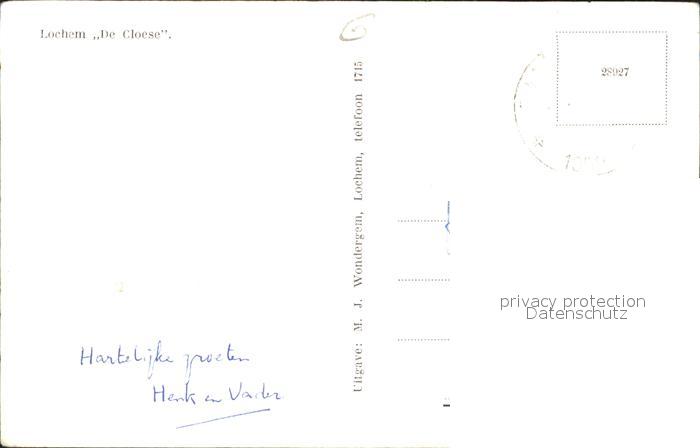 Lochem „De Cloese”.
Uitgave: M. J. Wondergem, Lochem, telefoon 1715
28027
privacy protection
Datenschutz
Hartelijke groeten
Henk en Vader